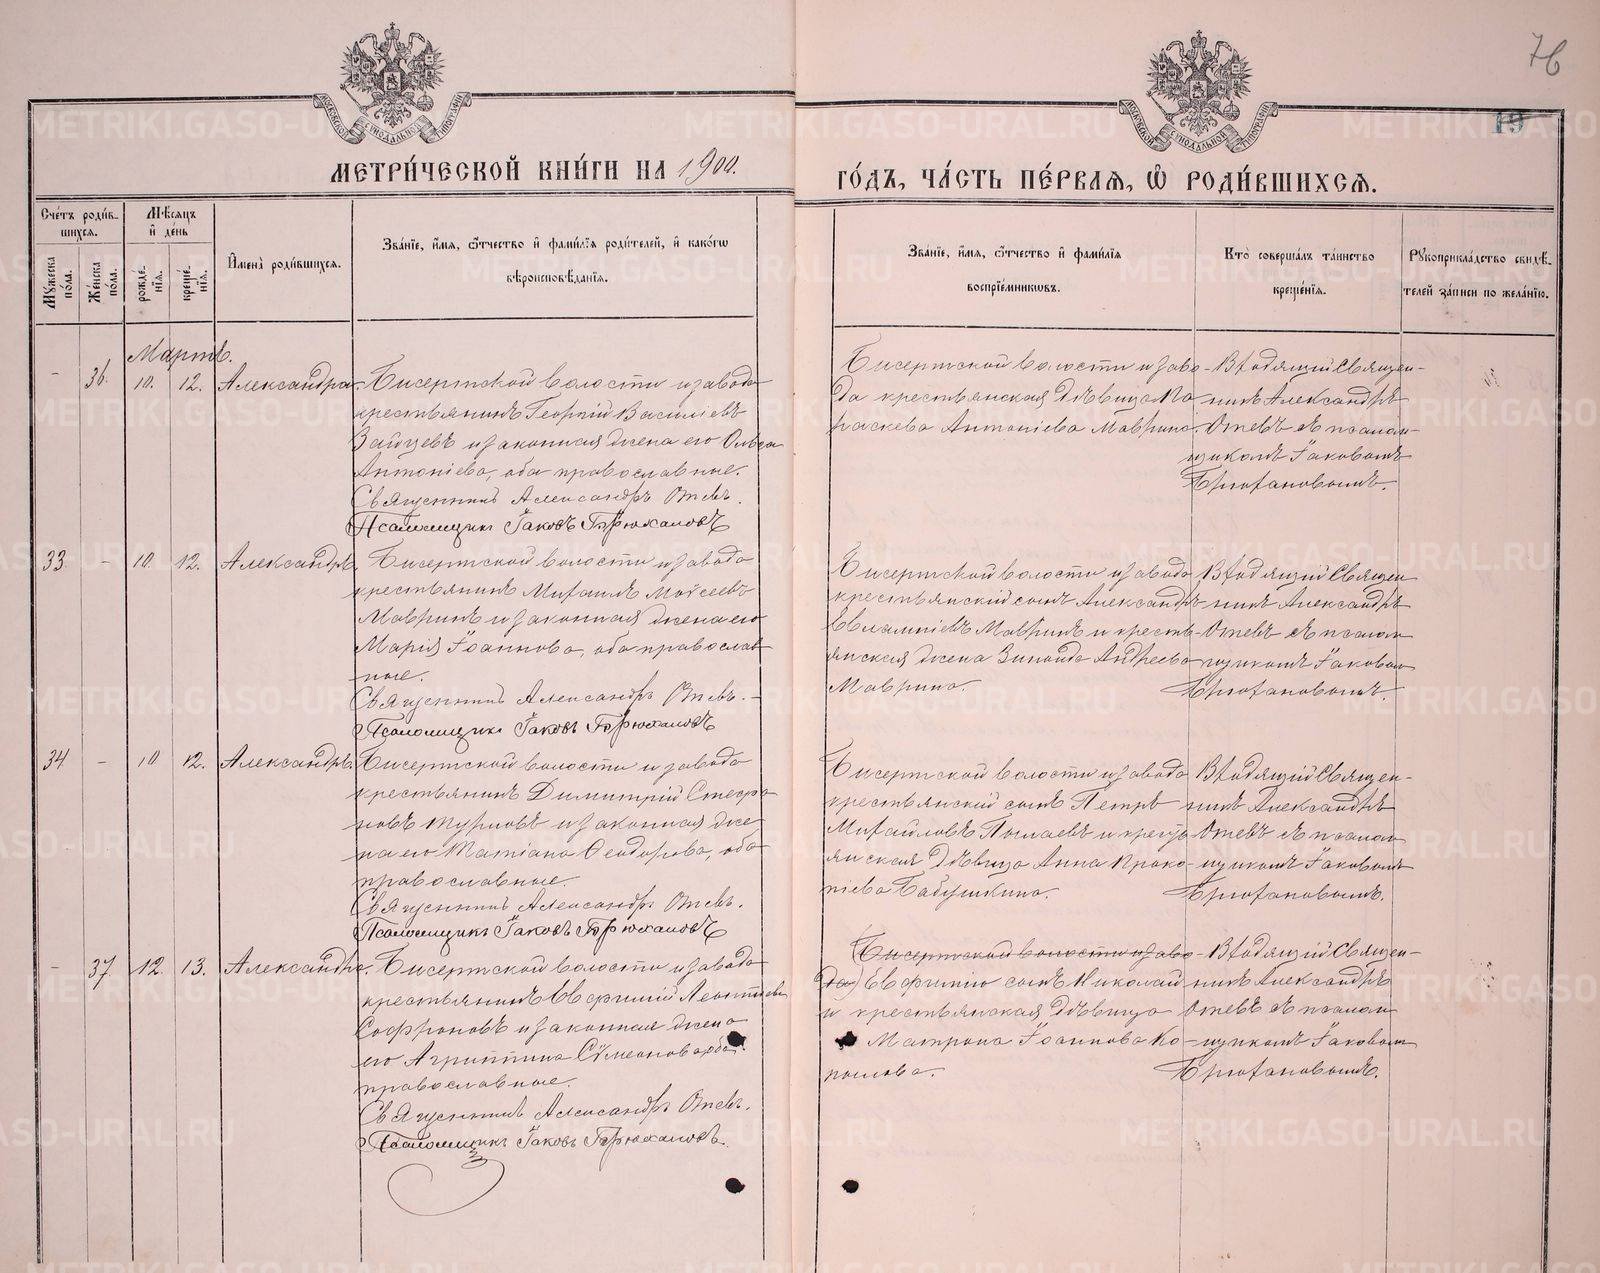 76
19
МОСКОВСКОЙ СѴНОДАЛЬНОЙ ТИПОГРАФІИ
МОСКОВСКОЙ СѴНОДАЛЬНОЙ ТИПОГРАФІИ
МЕТРИ́ЧЕСКОЙ КНИ́ГИ НА 1900.
ГО́ДЪ, ЧА́СТЬ ПЕ́РВАЯ, Ѽ РОДИ́ВШИХСЯ.
Сче́тъ роди́в-
шихся.
Мꙋ́жеска по́ла.
Же́нска по́ла.
Мѣ́сяцъ и҆ де́нь
рожде́нїя.
креще́нїя.
И҆мена̀ роди́вшихся.
Зва́нїе, и҆́мя, ѻ҆́тчество и҆ фами́лїя роди́телей, и҆ како́гѡ
вѣроисповѣ́данїя.
Зва́нїе, и҆́мя, ѻ҆́тчество и҆ фами́лїя
воспрїе́мниковъ.
Кто̀ соверша́лъ та́инство
креще́нїя.
Рꙋкоприкла́дство свидѣ́-
телей за́писи по жела́нїю.
Мартъ.
- 36. 10. 12. Александра
Бисертской волости и завода
крестьянинъ Георгій Василіевъ
Зайцевъ и законная жена его Ольга
Антоніева, оба православные.
Священникъ Александръ Отевъ.
Псаломщикъ Іаковъ Брюхановъ
Бисертской волости и заво-
да крестьянская дѣвица Па
раскева Антоніева Маврина.
Входящій Священ-
никъ Александръ
Отевъ съ псалом-
щикомъ Іаковомъ
Брюхановымъ.
33. - 10. 12. Александръ.
Бисертской волости и завода
крестьянинъ Михаилъ Моисеевъ
Мавринъ и законная жена его
Марія Іоаннова, оба православ
ные.
Священникъ Александръ Отевъ. -
Псаломщикъ Іаковъ Брюхановъ
Бисертской волости и завода
крестьянскій сынъ Александръ
Евлампіевъ Мавринъ и кресть-
янская жена Зинаида Андреева
Маврина.
Входящій Священ
никъ Александръ
Отевъ съ псалом
щикомъ Іаковом
Брюхановымъ.
34 - 10 12. Александръ.
Бисертской волости и завода
крестьянинъ Димитрій Стефа
новъ Турковъ и законная же
на его Татіана Ѳеодорова, оба
православные.
Священникъ Александръ Отевъ.
Псаломщикъ Іаковъ Брюхановъ
Бисертской волости и завода
крестьянскій сынъ Петръ
Михайловъ Пылаевъ и кресть
янская дѣвица Анна Проко-
піева Бабушкина.
Входящій Священ-
никъ Александръ
Отевъ съ псалом
щикомъ Іаковымъ
Брюхановымъ.
- 37. 12. 13. Александра.
Бисертской волости и завода
крестьянинъ Евфимій Леонтіевъ
Софроновъ и законная жена
его Агриппина Сѵмеонова, оба
православные.
Священникъ Александръ Отевъ.
Псаломщикъ Іаковъ Брюхановъ.
(Бисертской волости и заво-
да) сынъ Николай
и крестьянская дѣвица
Матрона Іоаннова Ко-
пылова.
Входящій Священ-
никъ Александръ
Отевъ съ псалом
щикомъ Іаковом
Брюхановымъ.
METRIKI.GASO-URAL.RU